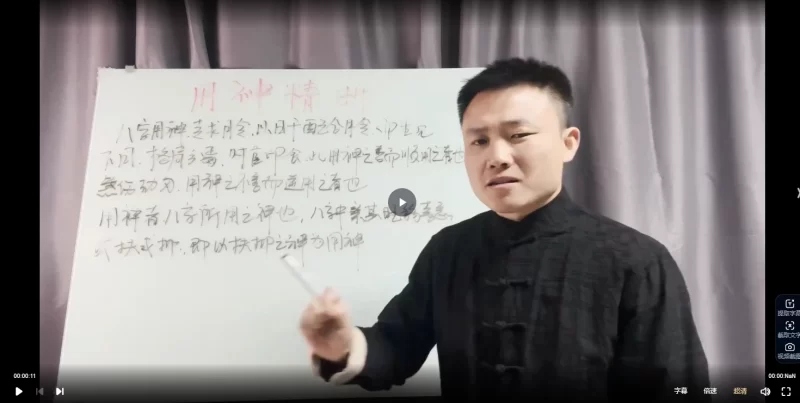 用神精
八字用神,专求月令,以日干配
不同,格局分焉。财官印食,此用神之善而顺用之者也
煞伤劫刃,用神之不善而逆用之者也
用神者八字所用之神也,八
或扶或抑,即以扶抑之神为用神
00:00:11
00:00:NaN
字幕
倍速
超清
提取字幕
截取文字
视频截图